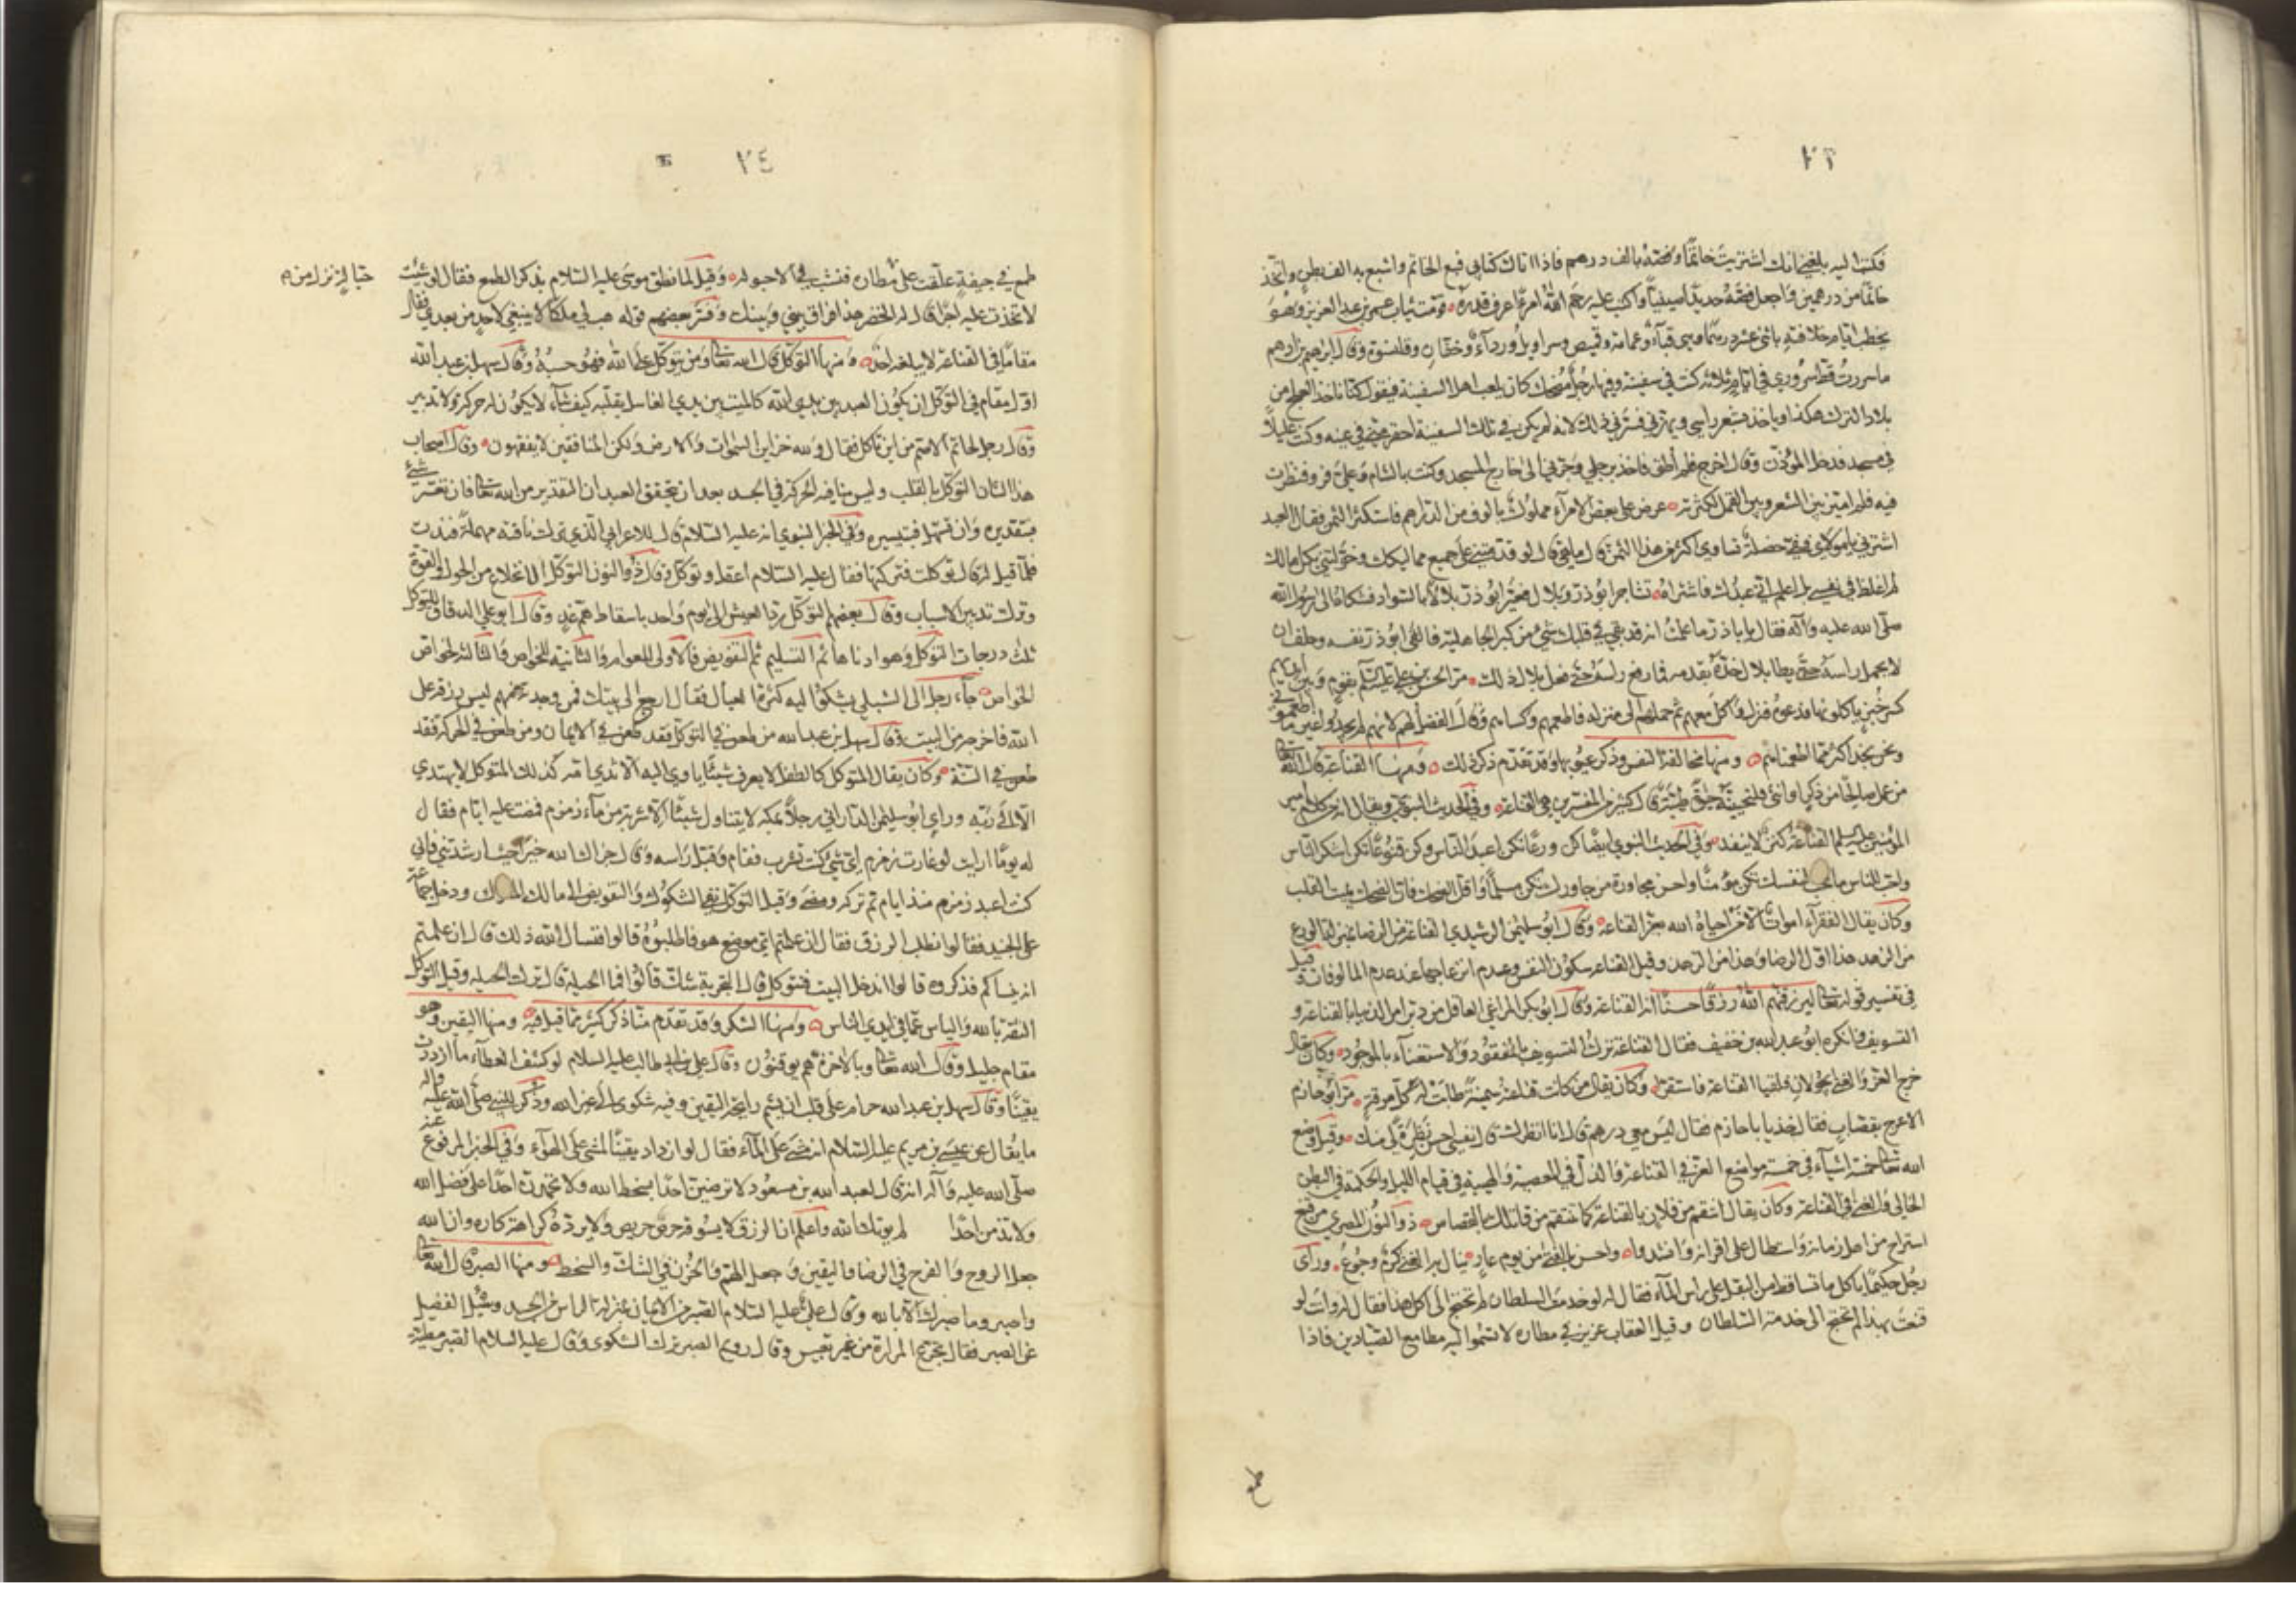 ٢٣
فكتب اليه بلغني انك اشتريت خاتمًا وفصّه بالف درهم فاذا اتاك كتابي فبع الخاتم واشبع به الف بطن واتّخذ
خاتمًا من درهمين واجعل فصّه حديدًا صينيًا واكتب عليه رحم الله امرءًا عرف قدره وقومت ثياب عمر بن عبد العزيز وهو
يخطب ايام خلافته باثنى عشر درهمًا وهي قباء وعمامة وقميص وسراويل ورداء وخفّان وقلنسوة وقال ابراهيم بن ادهم
ما سررت قط سروري في ايام ثلاثة كنت في سفينة وفيها رجل مضحك كان يلعب اهل السفينة فيقول كنا ناخذ العلج من
بلاد الترك هكذا وياخذ بشعر راسي ويهزني فسرّني ذلك لانه لم يكن في تلك السفينة احقر مني في عينه وكنت عليلاً
في مسجد فدخل المؤذن وقال اخرج فلم اطق فاخذ برجلي وجرّني الى خارج المسجد وكنت بالشام وعليّ فرو فنظرت
فيه فلم اميّز بين الشعر وبين القمل لكثرته عرض على بعض الامراء مملوك بالوف من الدراهم فاستكثر الثمن فقال العبد
اشترني يا مولاي ففيّ خصلة تساوي اكثر من هذا الثمن قال ما هي قال لو قدمتني على جميع مماليكك وخوّلتني بكل مالك
لم اغلط في نفسي بل اعلم اني عبدك فاشتراه تشاجر ابوذر وبلال فعيّر ابوذر بلالاً بالسواد فشكاه الى رسول الله
صلى الله عليه وآله فقال يا باذر ما علمت انه قد بقي في قلبك شيء من كبر الجاهلية فالقى ابوذر نفسه وحلف ان
لا يحمل راسه حتى يطا بلال خدّه بقدمه فما رفع راسه حتى فعل بلال ذلك مرّ الحسن بن علي عليه السلام بقوم وبين ايديهم
كسر خبز ياكلونها فدعوه فنزل واكل معهم ثم حملهم الى منزله فاطعمهم وكساهم وقال الفضل لهم لانهم لم يجدوا غير ما اطعموني
ونحن نجد اكثر مما اطعمناهم ومنها مخالفة النفس وذكر عيوبها وقد تقدم ذكر ذلك ومنها القناعة قال الله تعالى
من عمل صالحًا من ذكر او انثى فلنحيينّه حيوة طيبة قال كثير من المفسرين هي القناعة وفي الحديث النبوي ويقال انه من كلام امير
المؤمنين عليه السلام القناعة كنز لا ينفد وفي الحديث النبوي ايضًا كن ورعًا تكن اعبد الناس وكن قنوعًا تكن اشكر الناس
واحب للناس ما تحب لنفسك تكن مؤمنًا واحسن مجاورة من جاورك تكن مسلمًا واقل الضحك فان الضحك يميت القلب
وكان يقال الفقراء اموات الا من احياه الله بعز القناعة وقال ابو سليمن القناعة من الرضا بمنزلة الورع
من الزهد هذا اول الرضا وهذا اول الزهد وقيل القناعة سكون النفس وعدم انزعاجها عند عدم المالوفات وقيل
في تفسير قوله تعالى ليرزقنهم الله رزقًا حسنًا انه القناعة وقال ابو بكر المراغي العاقل من دبّر امر الدنيا بالقناعة و
التسويف وانكره ابو عبد الله بن خفيف فقال القناعة ترك التسويف بالمفقود والاستغناء بالموجود وكان يقال
خرج العز والغنى يجولان فلقيا القناعة فاستقرا وكان يقال من كانت قناعته سمينة طابت له كل مرقة مرّ ابو حازم
الاعرج بقصاب فقال خذ يا باحازم فقال ليس معي درهم قال انا انظرك قال نفسي احسن نظرة لي منك وقيل وضع
الله تعالى خمسة اشياء في خمسة مواضع العز في القناعة والذل في المعصية والهيبة في قيام الليل والحكمة في البطن
الخالي والغنى في القناعة وكان يقال انتقم من فلان بالقناعة كما تنتقم من قاتلك بالقصاص ذو النون المصري من قنع
استراح من اهل زمانه واستطال على اقرانه وانشدوا واحسن بالفتى من يوم عار ينال به الغنى كرم وجوع وراى
رجل حكيمًا ياكل ما تساقط من البقل على راس الماء فقال له لو خدمت السلطان لم تحتج الى اكل هذا فقال له وانت لو
قنعت بهذا لم تحتج الى خدمة السلطان وقيل العقاب عزيز في مطاره لا تسموا اليه مطامع الصيادين فاذا
طمع
٢٤
طمع في جيفة علقت على مطاره فنشب في الاحبولة وقيل لما نطق موسى عليه السلام بذكر الطمع فقال لو شئت
لاتخذت عليه اجرًا قال له الخضر هذا فراق بيني وبينك وفسّر بعضهم قوله هب لي ملكًا لا ينبغي لاحد من بعدي فقال
مقامًا في القناعة لا يبلغه احد ومنها التوكل قال الله تعالى ومن يتوكل على الله فهو حسبه وقال سهل بن عبد الله
اول مقام في التوكل ان يكون العبد بين يدي الله كالميت بين يدي الغاسل يقلبه كيف شاء لا يكون له حركة ولا تدبير
وقال رجل لحاتم الاصم من اين تاكل فقال ولله خزاين السموات والارض ولكن المنافقين لا يفقهون وقال اصحاب
هذا الشان التوكل بالقلب وليس ينافيه الحركة في الجسد بعد ان يتحقق العبد ان التقدير من الله تعالى فان تعسّر شيء
فبتقديره وان تسهّل فبتيسيره وفي الخبر النبوي انه عليه السلام قال للاعرابي الذي ترك ناقته مهملة فندّت
فلما قيل له قال توكلت فتركتها فقال عليه السلام اعقل وتوكل وقال ذو النون التوكل الانخلاع من الحول والقوة
وترك تدبير الاسباب وقال بعضهم التوكل رد العيش الى يوم واحد باسقاط هم غد وقال ابو علي الدقاق التوكل
ثلث درجات التوكل وهو ادناها ثم التسليم ثم التفويض فالاولى للعوام والثانية للخواص والثالثة لخواص
الخواص جاء رجل الى الشبلي يشكوا اليه كثرة العيال فقال ارجع الى بيتك فمن وجدته منهم ليس رزقه على
الله فاخرجه من البيت وقال سهل بن عبد الله من طعن في التوكل فقد طعن في الايمان ومن طعن في الحركة فقد
طعن في السنة وكان يقال المتوكل كالطفل لا يعرف شيئًا ياوي اليه الا ثدي امه كذلك المتوكل لا يهتدي
الا الى ربه وراى ابو سليمن الداراني رجلاً بمكة لا يتناول شيئًا الا شربة من ماء زمزم فمضت عليه ايام فقال
له يومًا ارايت لو غارت زمزم اي شيء كنت تشرب فقام وقبل راسه وقال جزاك الله خيرًا حيث ارشدتني فاني
كنت اعبد زمزم منذ ايام ثم تركه ومضى وقيل التوكل نفي الشكوك والتفويض الى مالك الملوك ودخل جماعة
على الجنيد فقالوا نطلب الرزق فقال ان علمتم اي موضع هو فاطلبوه قالوا فنسال الله ذلك قال ان علمتم
انه ينساكم فذكروه قالوا اندخل البيت فنتوكل قال التجربة شك قالوا فما الحيلة قال ترك الحيلة وقيل التوكل
الثقة بالله والياس عما في ايدي الناس ومنها الشكر وقد تقدم منّا ذكر كثير مما قيل فيه ومنها اليقين وهو
مقام جليل وقال الله تعالى وبالاخرة هم يوقنون وقال علي بن ابي طالب عليه السلام لو كشف الغطاء ما ازددت
يقينًا وقال سهل بن عبد الله حرام على قلب ان يشم رايحة اليقين وفيه شكوى الى غير الله وذُكر للنبي صلى الله عليه واله
ما يقال عن عيسى بن مريم عليه السلام انه مشى على الماء فقال لو ازداد يقينًا لمشى على الهواء وفي الخبر المرفوع عنه
صلى الله عليه وآله انه قال لعبد الله بن مسعود لا ترضين احدًا بسخط الله ولا تحمدن احدًا على فضل الله
ولا تذمن احدًا لم يؤتك الله واعلم ان الرزق لا يسوقه حرص حريص ولا يرده كراهة كاره وان الله
جعل الروح والفرح في الرضا واليقين وجعل الهم والحزن في الشك والسخط ومنها الصبر قال الله تعالى
واصبر وما صبرك الا بالله وقال علي عليه السلام الصبر من الايمان بمنزلة الراس من الجسد وسئل الفضيل
عن الصبر فقال تجرّع المرارة من غير تعبيس وقال رويم الصبر ترك الشكوى وقال عليه السلام الصبر مطية